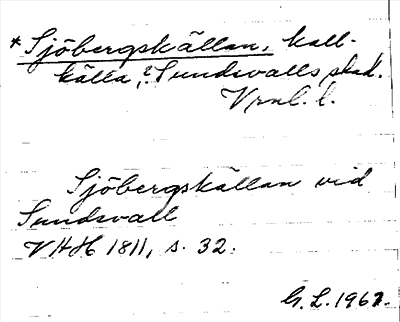 *Sjöbergskällan, kall-
källa, ? Sundsvalls stad.
V.rnl. l.
Sjöbergskällan vid
Sundsvall
VHH 1811, s. 32.
G. L. 1967.